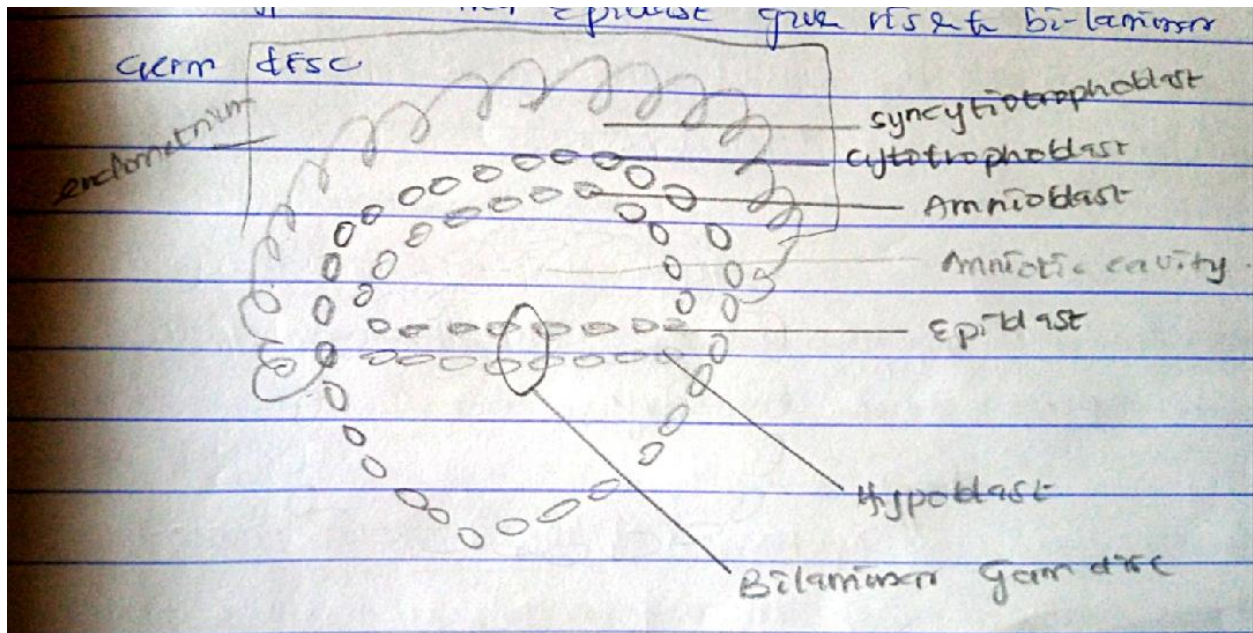 epiblast give rise to bi-laminar
Germ disc
endometrium
syncytiotrophoblast
cytotrophoblast
Amnioblast
Amniotic cavity
Epiblast
Hypoblast
Bilaminar Germ disc